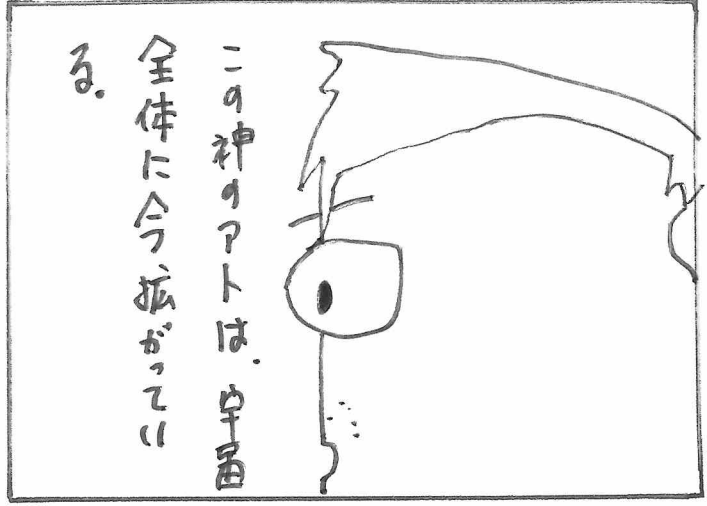 この神のアトは、宇宙
全体に今、拡がってい
る。